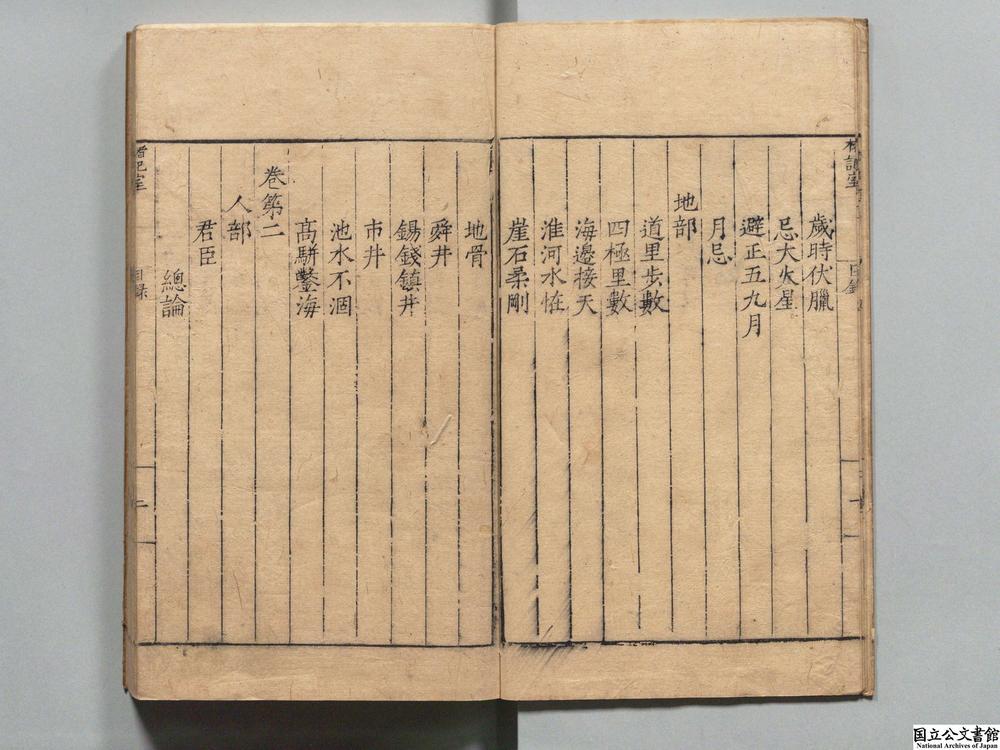 歲時伏臘
忌大火星
避正五九月
月忌
地部
道里步數
四極里數
海邊接天
淮河水恠
崖石柔剛
地骨
舜井
錫錢鎮井
市井
池水不涸
髙駢鑿海
卷第二
人部
君臣
總論
目録
二
国立公文書館
National Archives of Japan